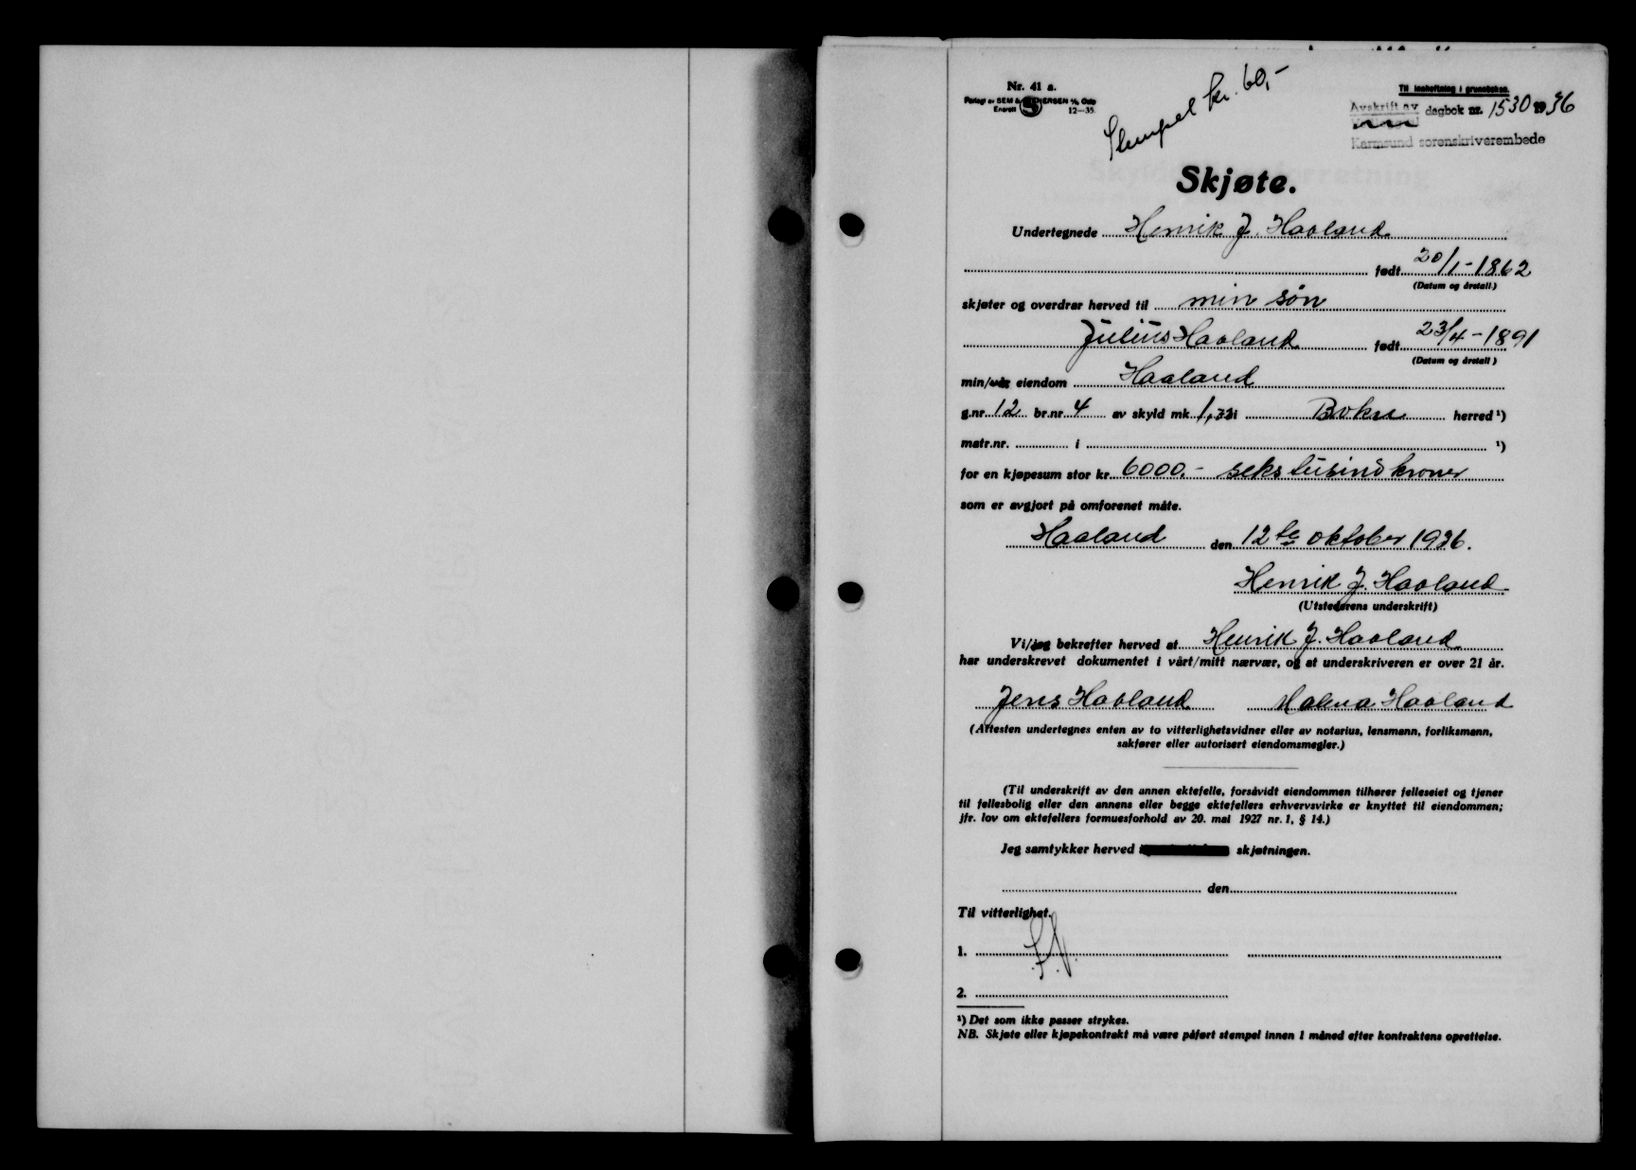 Nr. 41 a.
Forlagt av SEM & STENERSEN A/S, Oslo
Enerett 12—35.
Stempel kr. 60,-
Til innheftning i grunnboken.
Avskrift av dagbok nr. 1530 1936
Karmsund sorenskriverembede
Skjøte.
Undertegnede Henrik J. Haaland
født 20/1-1862
(Datum og årstall)
skjøter og overdrar herved til min søn
Julius Haaland født 23/4-1891
(Datum og årstall)
min/vår eiendom Haaland
g.nr. 12 br.nr. 4 av skyld mk. 1,73 i Bokn herred ¹)
matr.nr. i ¹)
for en kjøpesum stor kr. 6000.- sekstusind kroner
som er avgjort på omforenet måte.
Haaland den 12te oktober 1936.
Henrik J. Haaland
(Utstederens underskrift)
Vi/jeg bekrefter herved at Henrik J. Haaland
har underskrevet dokumentet i vårt/mitt nærvær, og at underskriveren er over 21 år.
Jens Haaland Malena Haaland
(Attesten undertegnes enten av to vitterlighetsvidner eller av notarius, lensmann, forliksmann,
sakfører eller autorisert eiendomsmegler.)
(Til underskrift av den annen ektefelle, forsåvidt eiendommen tilhører felleseiet og tjener
til fellesbolig eller den annens eller begge ektefellers erhvervsvirke er knyttet til eiendommen;
jfr. lov om ektefellers formuesforhold av 20. mai 1927 nr. 1, § 14.)
Jeg samtykker herved skjøtningen.
den
Til vitterlighet.
1.
2.
¹) Det som ikke passer strykes.
NB. Skjøte eller kjøpekontrakt må være påført stempel innen 1 måned efter kontraktens oprettelse.